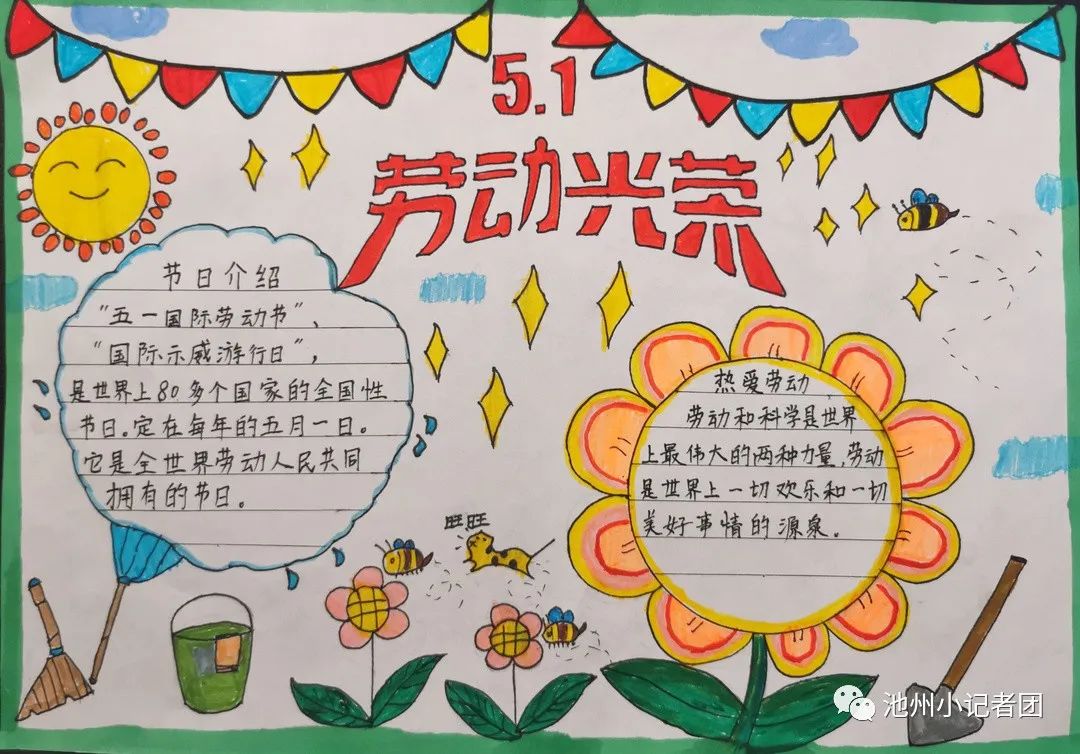 5.1
劳动光荣
节日介绍
“五一国际劳动节”、
“国际示威游行日”,
是世界上80多个国家的全国性
节日。定在每年的五月一日。
它是全世界劳动人民共同
拥有的节日。
热爱劳动,
劳动和科学是世界
上最伟大的两种力量,劳动
是世界上一切欢乐和一切
美好事情的源泉。
旺旺
池州小记者团